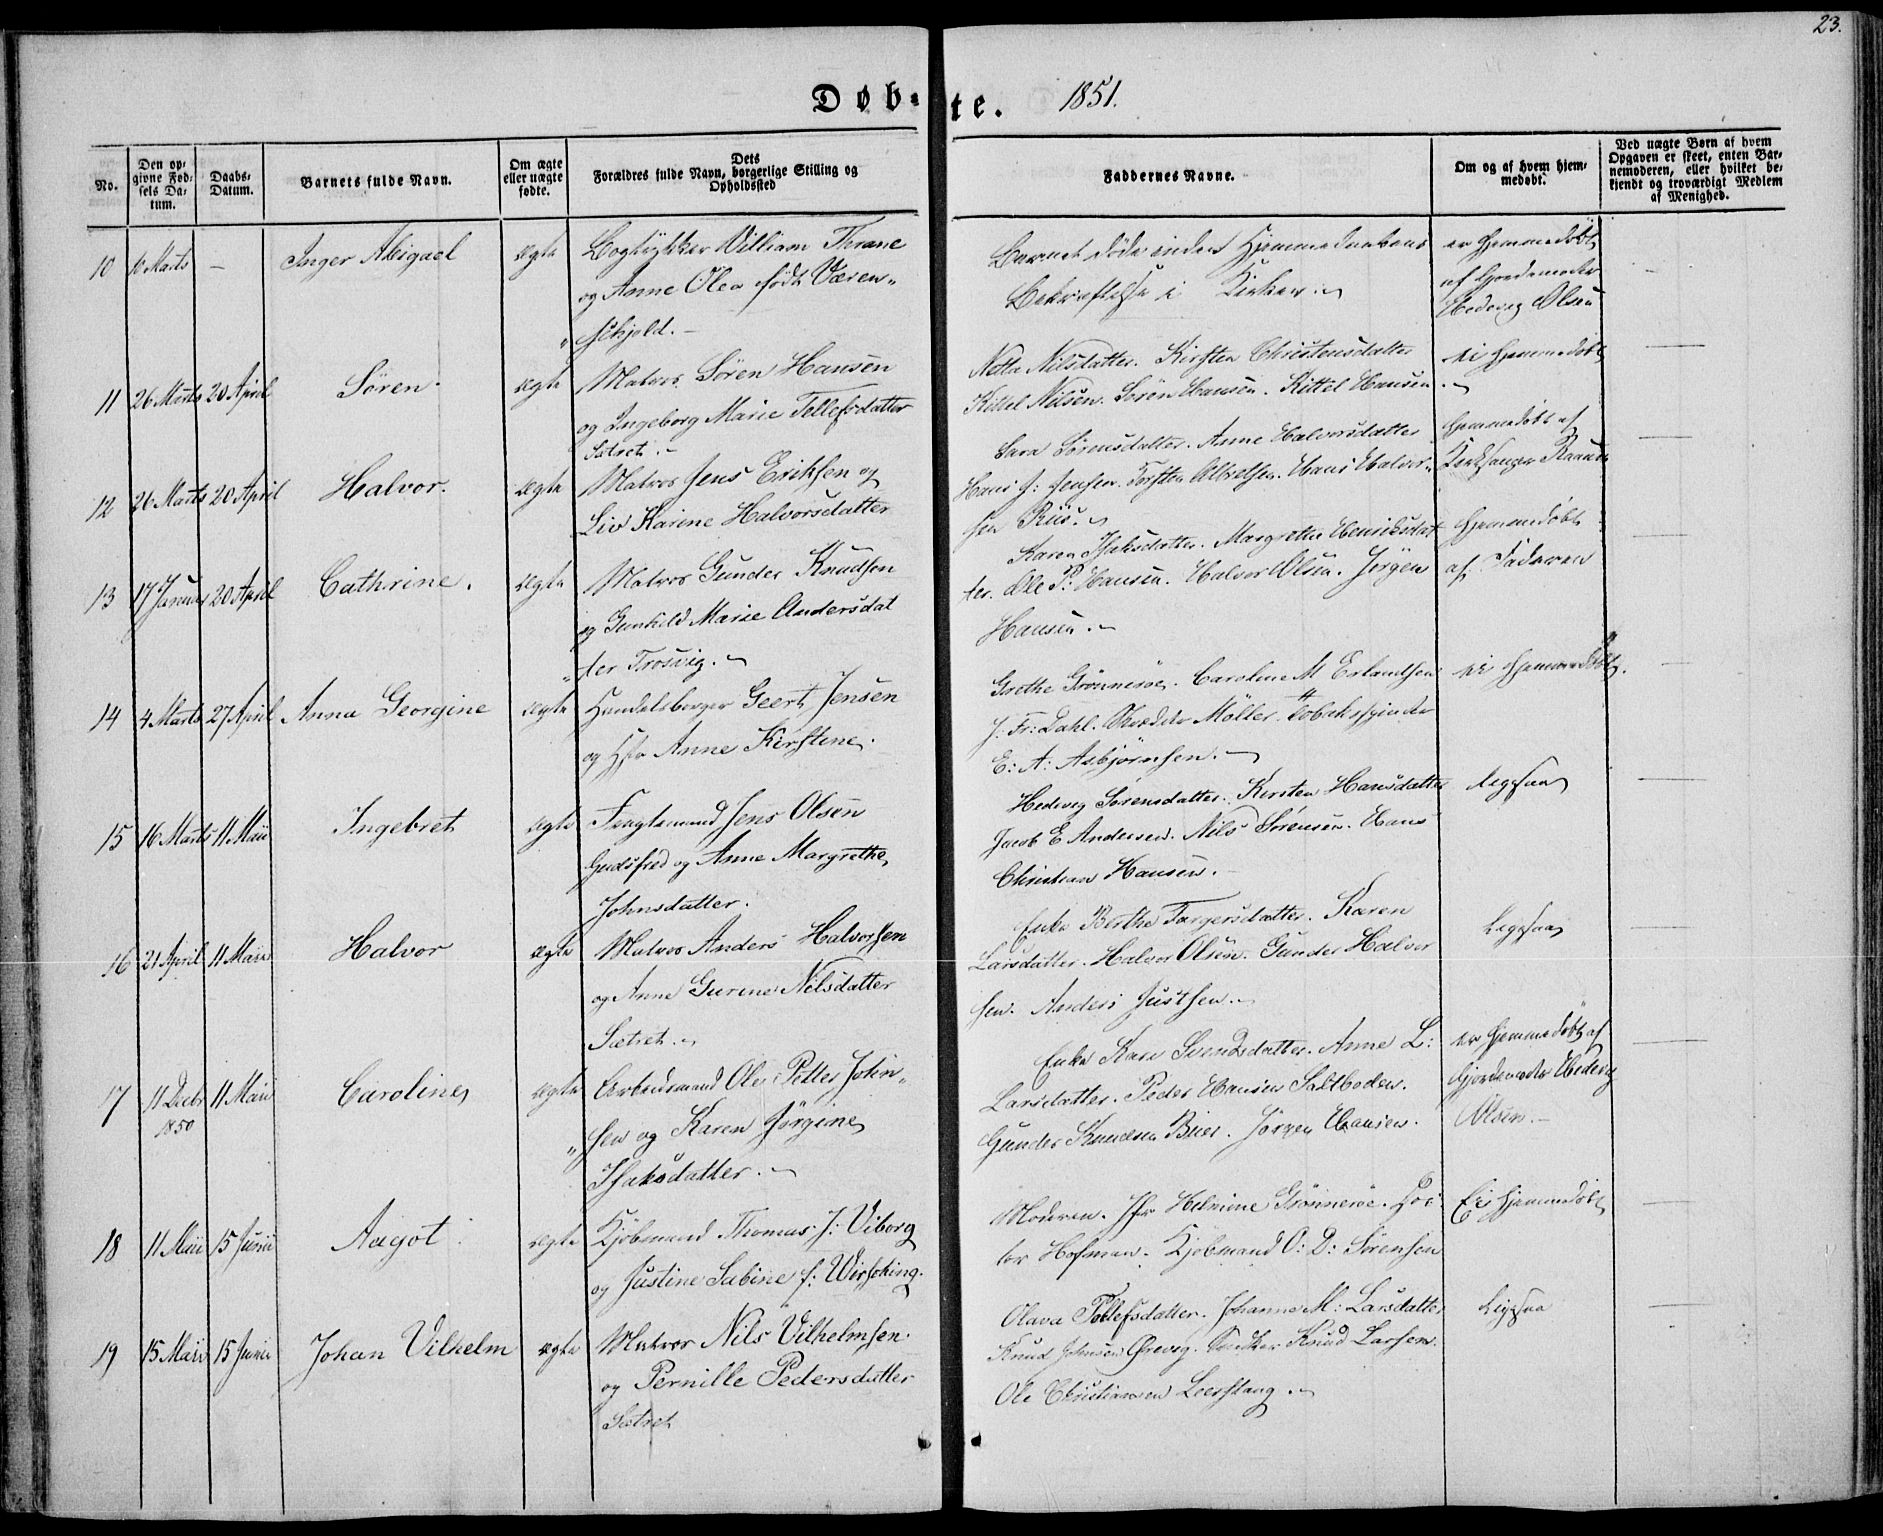 23.
Døb-te. 1851.
No.
Den opgivne Fødsels Datum.
Daabs-Datum.
Barnets fulde Navn.
Om ægte eller uægte fødte.
Dets Forældres fulde Navn, borgerlige Stilling og Opholdssted
Faddernes Navne.
Om og af hvem hjemmedøbt.
Ved uægte Børn af hvem Opgaven er skeet, enten Barnemoderen, eller hvilket bekjendt og troværdigt Medlem af Menighed.
10 10 Marts — Inger Abigael ægte Bogtrykker William Thrane
og Anne Olea født Væren-
"skjold. —
Barnet døde inden Hjemmedaabens
Bekræftelse i Kirken.
er hjemmedøbt
af Gjordemoder
Hedevig Olsen
11 26 Marts 20 April Søren. ægte Matros Søren Hansen
og Ingeborg Marie Tellefsdatter
Sætret. —
Netta Nilsdatter. Kirsten Christensdatter
Kittel Nilsen. Søren Hansen. Kittel Hansen
ei hjemmedøbt
12 26 Marts 20 April Halvor. ægte Matros Jens Eriksen og
Liv Karine Halvorsdatter
Sara Sørensdatter. Anne Halvorsdatter
Hans J: Jensen. Torsten Albretsen. Hans Halvor-
sen Riis.
hjemmedøbt af
Kirksanger
13 17 Januar 20 April Cathrine. ægte Matros Gunder Knudsen
og Gunhild Marie Andersdat
"ter Trosvig.
Karen Isaksdatter. Margrethe Henriksdat
ter. Ole P: Hansen. Halvor Olsen. Jørgen
Hansen.
hjemmedøbt
af Faderen
14 4 Marts 27 April Anna Georgine ægte Handelsborger Geert Jensen
og Hst Anne Kirstine.
Grethe Grønnerøe. Caroline M Erlandsen
J: Fr: Dahl. Skrædder Møller. Tobaksspinder
E: A: Asbjørnsen.
ei hjemmedøbt.
15 16 Marts 11 Maii Ingebret ægte Fragtemand Jens Olsen
Gudsfred og Anne Margrethe
Johnsdatter.
Hedevig Sørensdatter. Kirsten Hansdatter
Jacob E Andersen. Nils Sørensen. Hans
Christian Hansen.
ligesaa
16 21 April 11 Maii Halvor ægte Matros Anders Halvorsen
og Anne Gurine Nilsdatter
Sætret.
Enke Berthe Torgersdatter. Karen
Larsdatter. Halvor Olsen. Gunder Halvor
sen. Anders Justsen.
Ligesaa
17 11 Decbr 1850 11 Maii Caroline ægte Arbeidsmand Ole Petter John-
"sen og Karen Jørgine
Isaksdatter.
Enke Kari Svendsdatter. Anne L:
Larsdatter. Peder Hansen Saltboden.
Gunder Knudsen Bies. Jørgen Hansen.
er hjemmedøbt af
Gjordemoder Hedevig
Olsen. —
18 11 Maii 15 Junii Aagot ægte Kjøbmand Thomas J: Viborg
og Justine Sabine f: Wirsching.
Moderen. Jfr Helmine Grønnerøe. Doc
tor Hofman. Kjøbmand O: D: Sørensen
Ei hjemmedøbt
19 15 Maii 15 Junii Johan Vilhelm ægte Matros Nils Vilhelmsen.
og Pernille Pedersdatter
Sætret
Olava Tollefsdatter. Johanne M: Larsdatter
Knud Johnsen Ørevig. Snekker Knud Larsen.
Ole Christiansen Leerstang.
Ligesaa